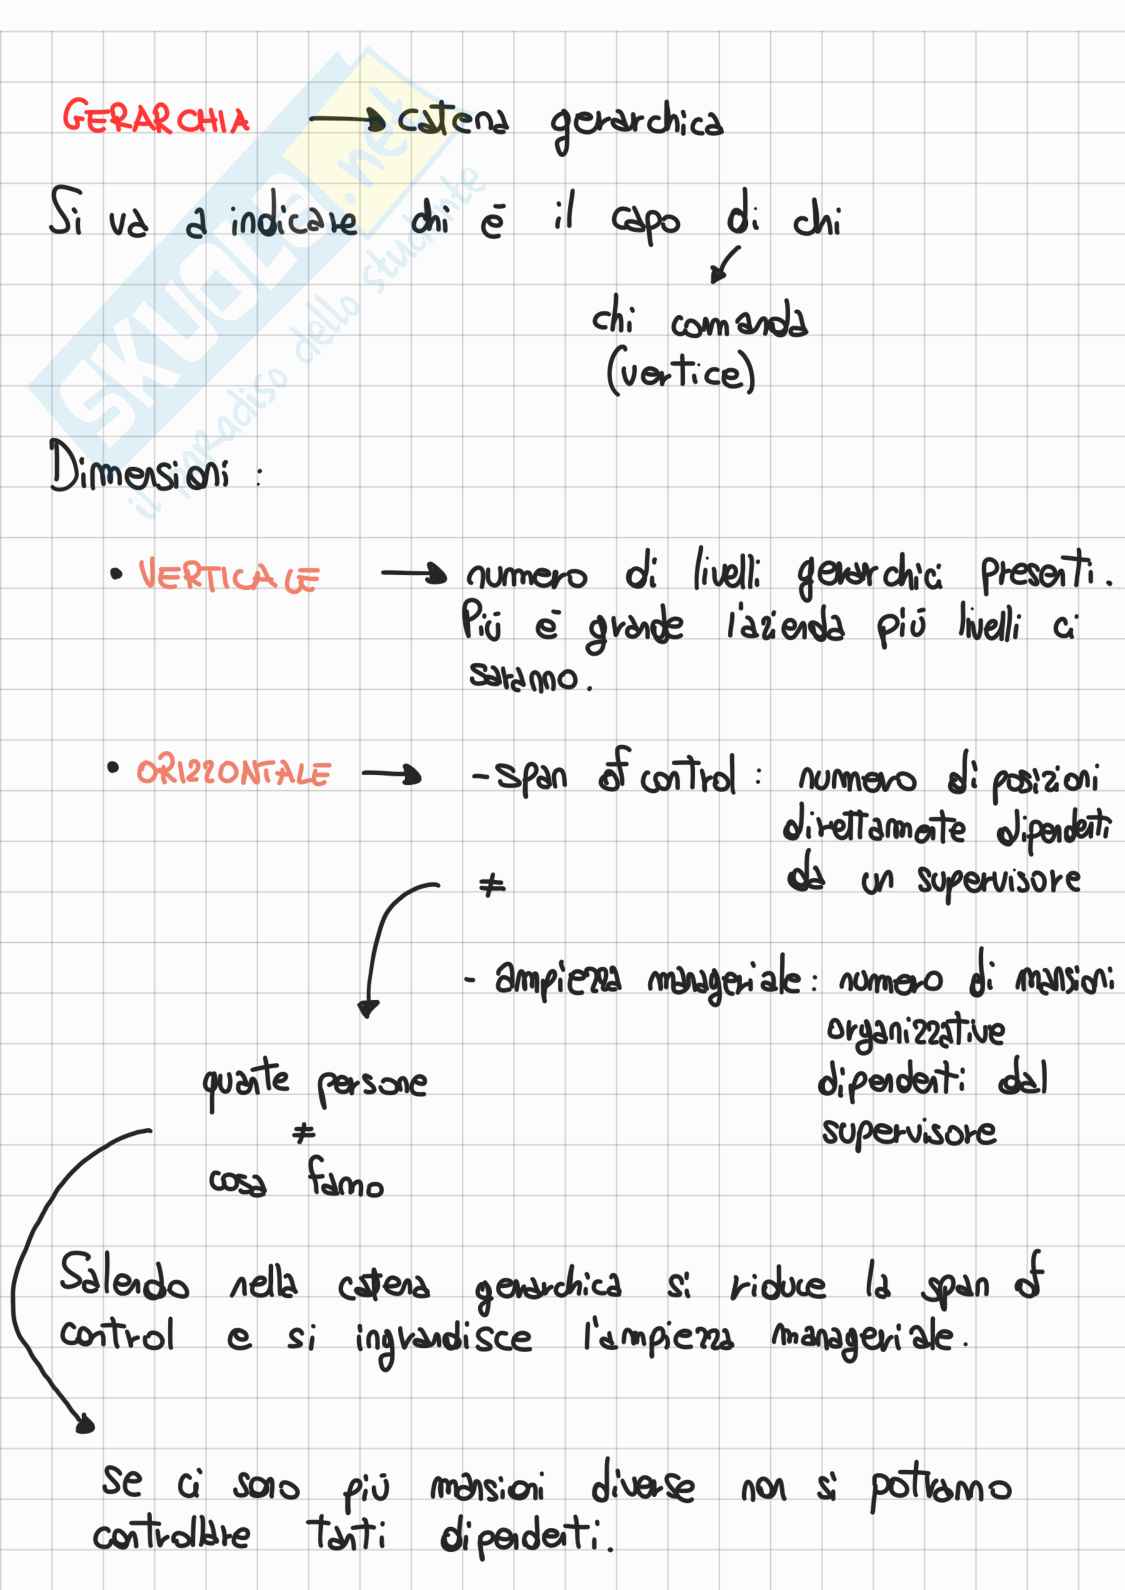 GERARCHIA → catena gerarchica
Si va a indicare chi è il capo di chi
chi comanda
(vertice)
Dimensioni :
• VERTICALE → numero di livelli gerarchici presenti.
Più è grande l'azienda più livelli ci
saranno.
• ORIZZONTALE → - span of control : numero di posizioni
direttamente dipendenti
≠ da un supervisore
- ampiezza manageriale : numero di mansioni
organizzative
quante persone dipendenti dal
≠ supervisore
cosa fanno
Salendo nella catena gerarchica si riduce la span of
control e si ingrandisce l'ampiezza manageriale.
se ci sono più mansioni diverse non si potranno
controllare tanti dipendenti.
SKUOLA.net
il paradiso dello studente